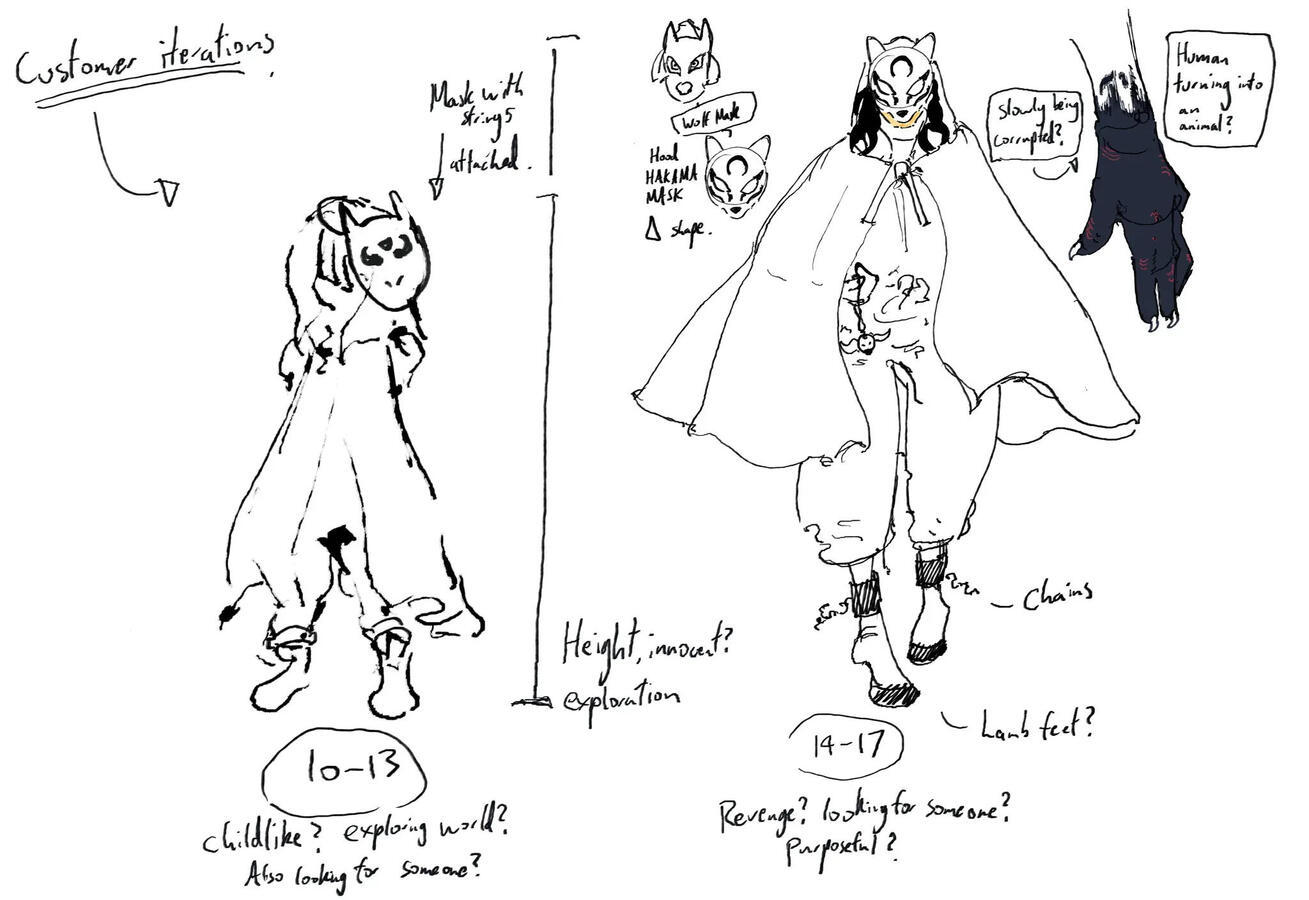 Customer iterations
Mask with
strings
attached.
Wolf Mask
Hood
HAKAMA
MASK
shape.
Slowly being
corrupted?
Human
turning into
an
animal?
Chains
Height, innocent?
exploration
Lamb feet?
10-13
Childlike? exploring world?
Also looking for someone?
14-17
Revenge? looking for someone?
Purposeful?